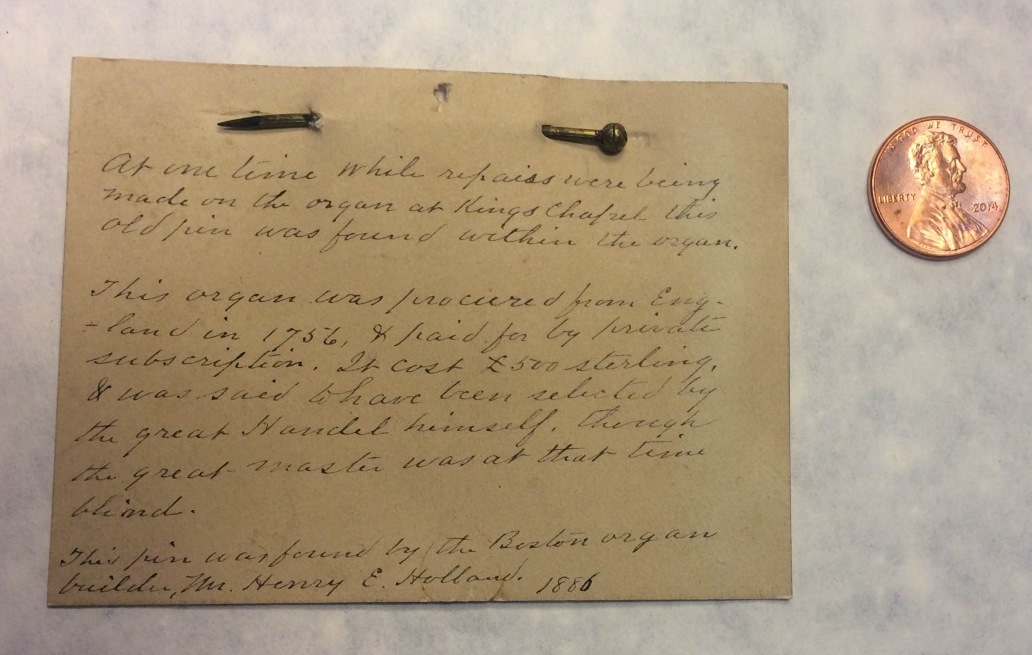 At one time while repairs were being
made on the organ at Kings Chapel this
old pin was found within the organ.
This organ was procured from Eng-
-land in 1756, & paid for by private
subscription. It cost £500 sterling,
& was said to have been selected by
the great Handel himself, though
the great master was at that time
blind.
This pin was found by the Boston organ
builder, Mr. Henry E. Holland. 1886
IN GOD WE TRUST
LIBERTY
2014